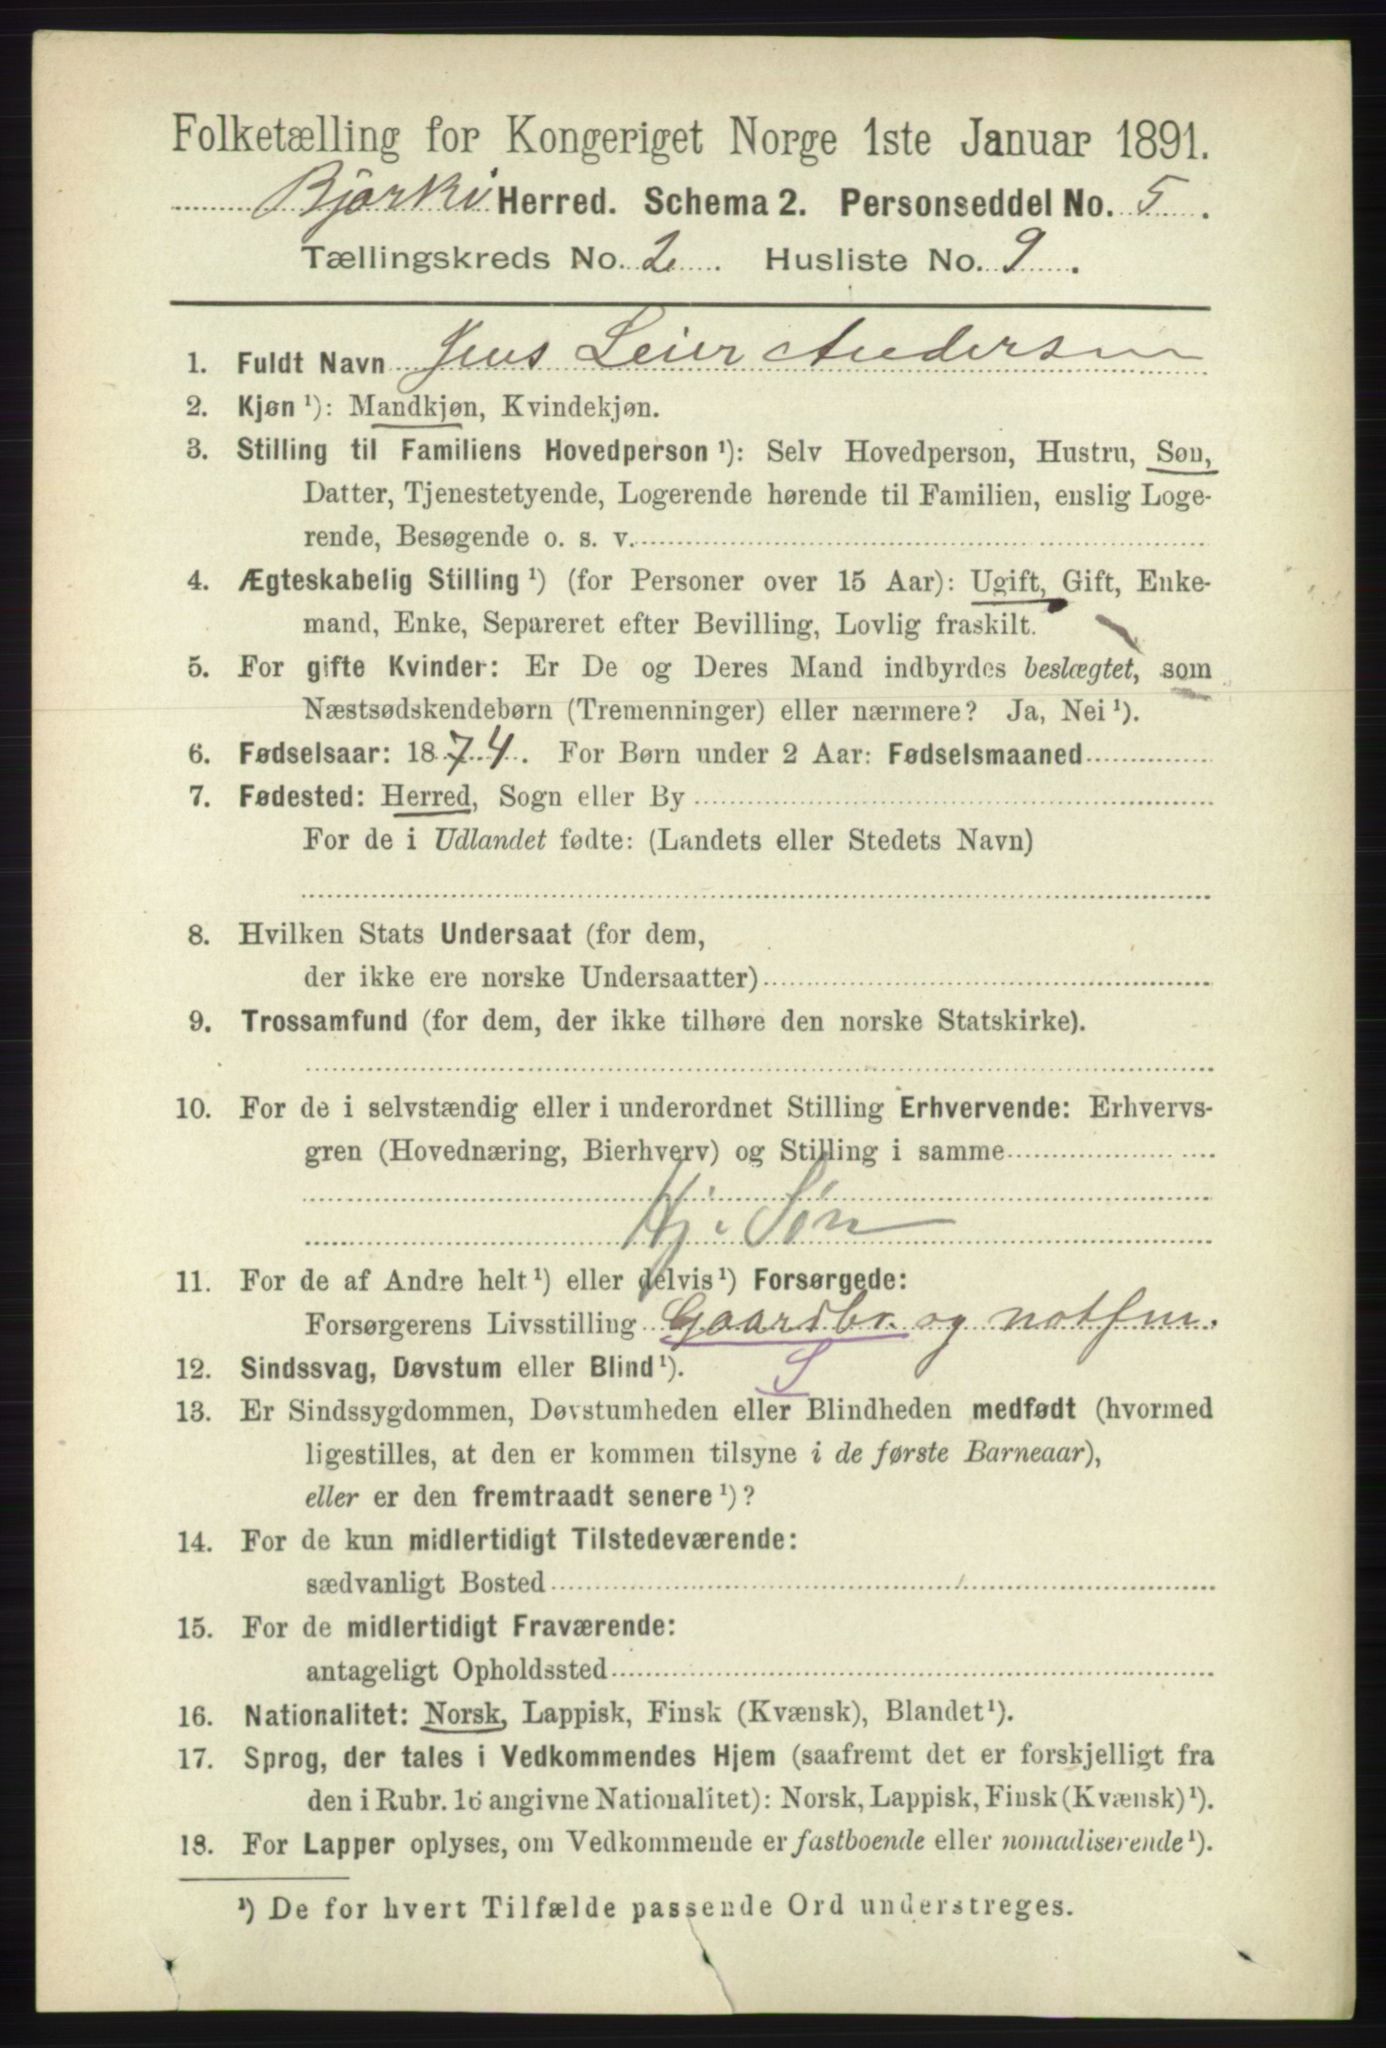 Folketælling for Kongeriget Norge 1ste Januar 1891.
Bjarkø Herred. Schema 2. Personseddel No. 5.
Tællingskreds No. 2. Husliste No. 9.
1. Fuldt Navn Jens Leier Andersen
2. Kjøn ¹): Mandkjøn, Kvindekjøn.
3. Stilling til Familiens Hovedperson ¹): Selv Hovedperson, Hustru, Søn,
Datter, Tjenestetyende, Logerende hørende til Familien, enslig Loge-
rende, Besøgende o. s. v.
4. Ægteskabelig Stilling ¹) (for Personer over 15 Aar): Ugift, Gift, Enke-
mand, Enke, Separeret efter Bevilling, Lovlig fraskilt.
5. For gifte Kvinder: Er De og Deres Mand indbyrdes beslægtet, som
Næstsødskendebørn (Tremenninger) eller nærmere? Ja, Nei ¹).
6. Fødselsaar: 1874. For Børn under 2 Aar: Fødselsmaaned
7. Fødested: Herred, Sogn eller By
For de i Udlandet fødte: (Landets eller Stedets Navn)
8. Hvilken Stats Undersaat (for dem,
der ikke ere norske Undersaatter)
9. Trossamfund (for dem, der ikke tilhøre den norske Statskirke).
10. For de i selvstændig eller i underordnet Stilling Erhvervende: Erhvervs-
gren (Hovednæring, Bierhverv) og Stilling i samme
Hj. Søn
11. For de af Andre helt ¹) eller delvis ¹) Forsørgede:
Forsørgerens Livsstilling Gaardbr. og notfm.
12. Sindssvag, Døvstum eller Blind ¹). S
13. Er Sindssygdommen, Døvstumheden eller Blindheden medfødt (hvormed
ligestilles, at den er kommen tilsyne i de første Barneaar),
eller er den fremtraadt senere ¹)?
14. For de kun midlertidigt Tilstedeværende:
sædvanligt Bosted
15. For de midlertidigt Fraværende:
antageligt Opholdssted
16. Nationalitet: Norsk, Lappisk, Finsk (Kvænsk), Blandet ¹).
17. Sprog, der tales i Vedkommendes Hjem (saafremt det er forskjelligt fra
den i Rubr. 16 angivne Nationalitet): Norsk, Lappisk, Finsk (Kvænsk) ¹).
18. For Lapper oplyses, om Vedkommende er fastboende eller nomadiserende ¹).
¹) De for hvert Tilfælde passende Ord understreges.